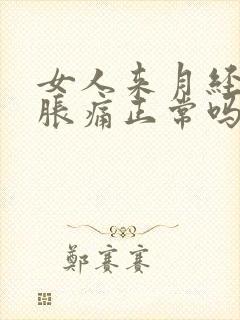 女人来月经
胀痛正常吗
鄭賽賽